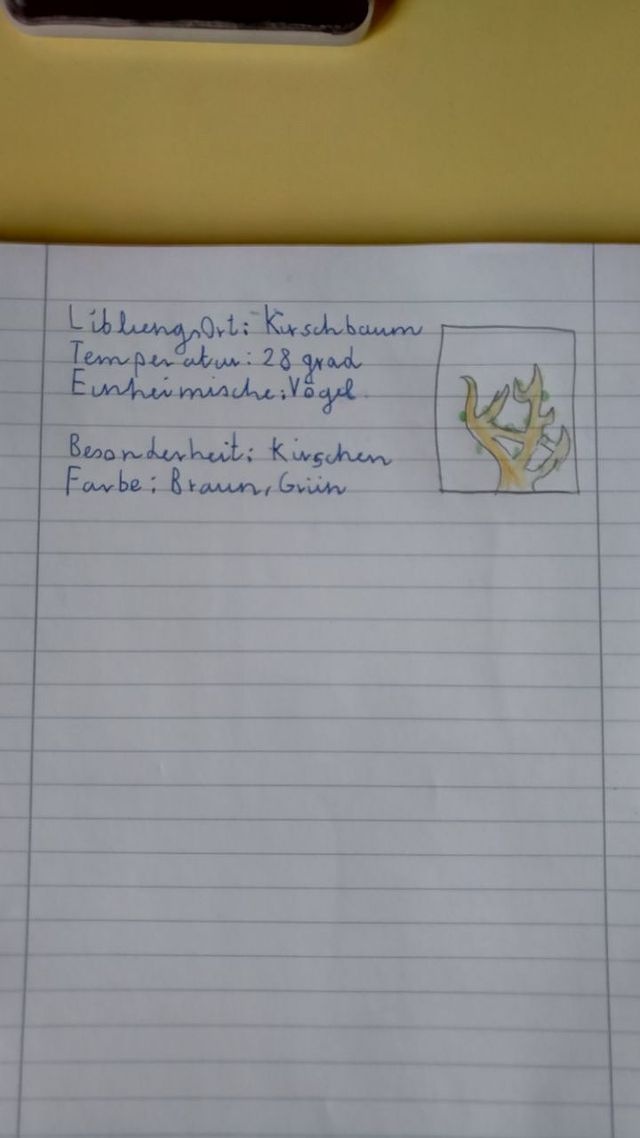 LiblungsOrt: Kirschbaum
Temperatur: 28 grad
Einheimische: Vögel
Besonderheit: Kirschen
Farbe: Braun, Grün